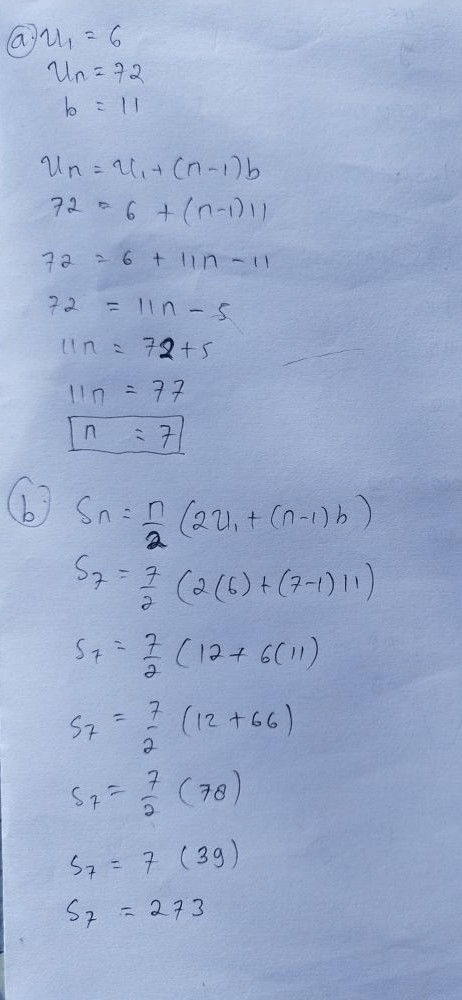 a. U₁ = 6
Un = 72
b = 11
Un = U₁ + (n-1)b
72 = 6 + (n-1)11
72 = 6 + 11n - 11
72 = 11n - 5
11n = 72+5
11n = 77
n = 7
b. Sn = n/2 (2U₁ + (n-1)b)
S₇ = 7/2 (2(6) + (7-1)11)
S₇ = 7/2 (12 + 6(11)
S₇ = 7/2 (12 + 66)
S₇ = 7/2 (78)
S₇ = 7 (39)
S₇ = 273